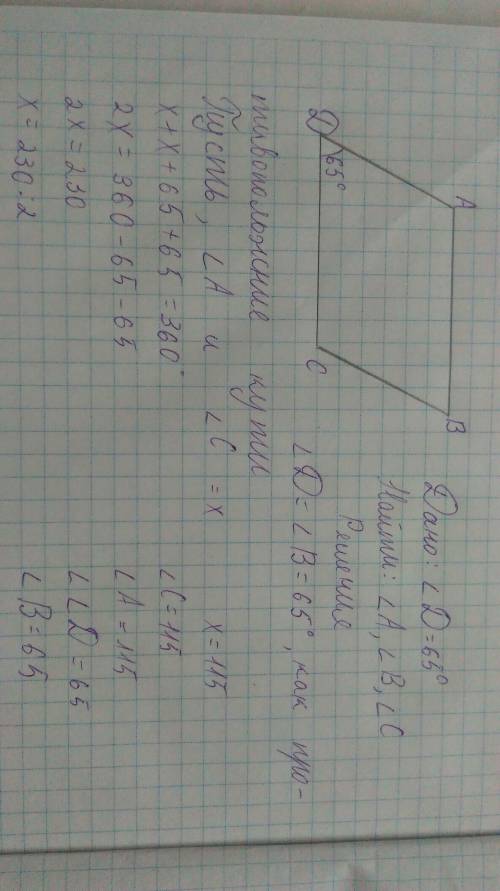 A
B
D
65°
C
Дано: ∠D=65°
Найти: ∠A, ∠B, ∠C
Решение
∠D = ∠B = 65°, как про-
тивоположные
Пусть, ∠A и ∠C = x
x + x + 65 + 65 = 360°
2x = 360 - 65 - 65
2x = 230
x = 230 : 2
x = 115
∠C = 115
∠A = 115
∠∠D = 65
∠B = 65